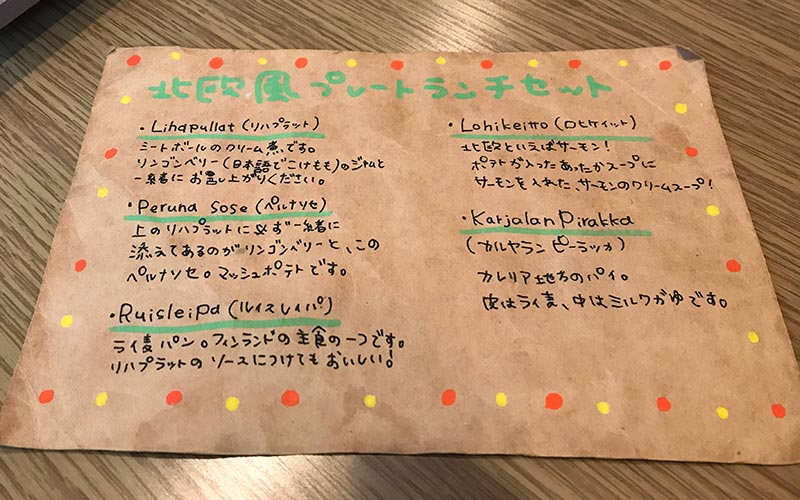 北欧風プレートランチセット
・Lihapullat(リハプラット)
ミートボールのクリーム煮です。
リンゴンベリー(日本語でこけもも)のジャムと
一緒にお召し上がりください。
・Peruna Sose(ペルナソセ)
上のリハプラットに必ず一緒に
添えてあるのがリンゴンベリーと、この
ペルナソセ。マッシュポテトです。
・Ruisleipa(ルイスレイパ)
ライ麦パン。フィンランドの主食の一つです。
リハプラットのソースにつけてもおいしい!
・Lohikeitto(ロヒケイット)
北欧といえばサーモン!
ポテトが入ったあったかスープに
サーモンを入れたサーモンのクリームスープ!
・Karjalan Pirakka
(カルヤランピーラッカ)
カレリア地方のパイ。
皮はライ麦、中はミルクがゆです。